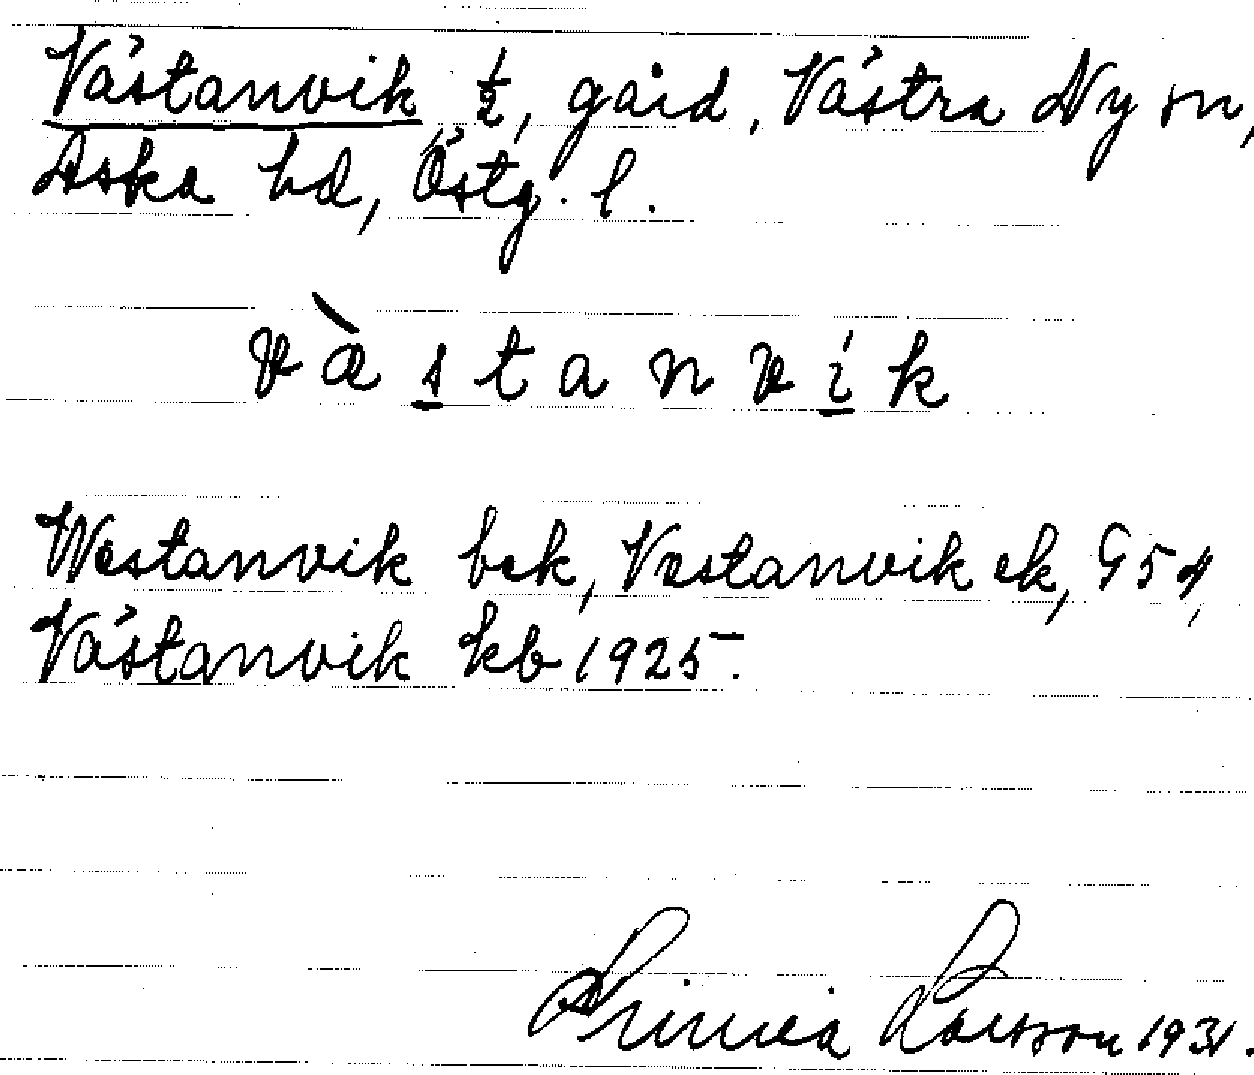 Västanvik ½, gård, Västra Ny sn,
Aska hd, Östg. l.
v æ̀ s t a n v í k
Westanvik bek, Vestanvik ek, G54,
Västanvik kb 1925.
Linnea Larsson 1931.